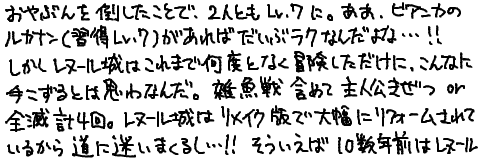 おやぶんを倒したことで、2人ともLv.7に。ああ、ビアンカの
ルカナン(習得Lv.7)があればだいぶラクなんだよな…!!
しかしレヌール城はこれまで何度となく冒険しただけに、こんなに
手こずるとは思わなんだ。雑魚戦含めて主人公きぜつor
全滅計4回。レヌール城はリメイク版で大幅にリフォームされて
いるから道に迷いまくるし…!! そういえば10数年前はレヌール